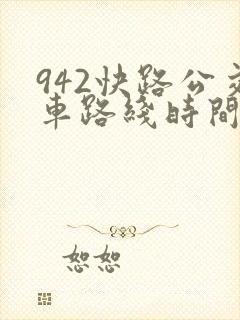 942快路公交
車路綫時間
恕恕